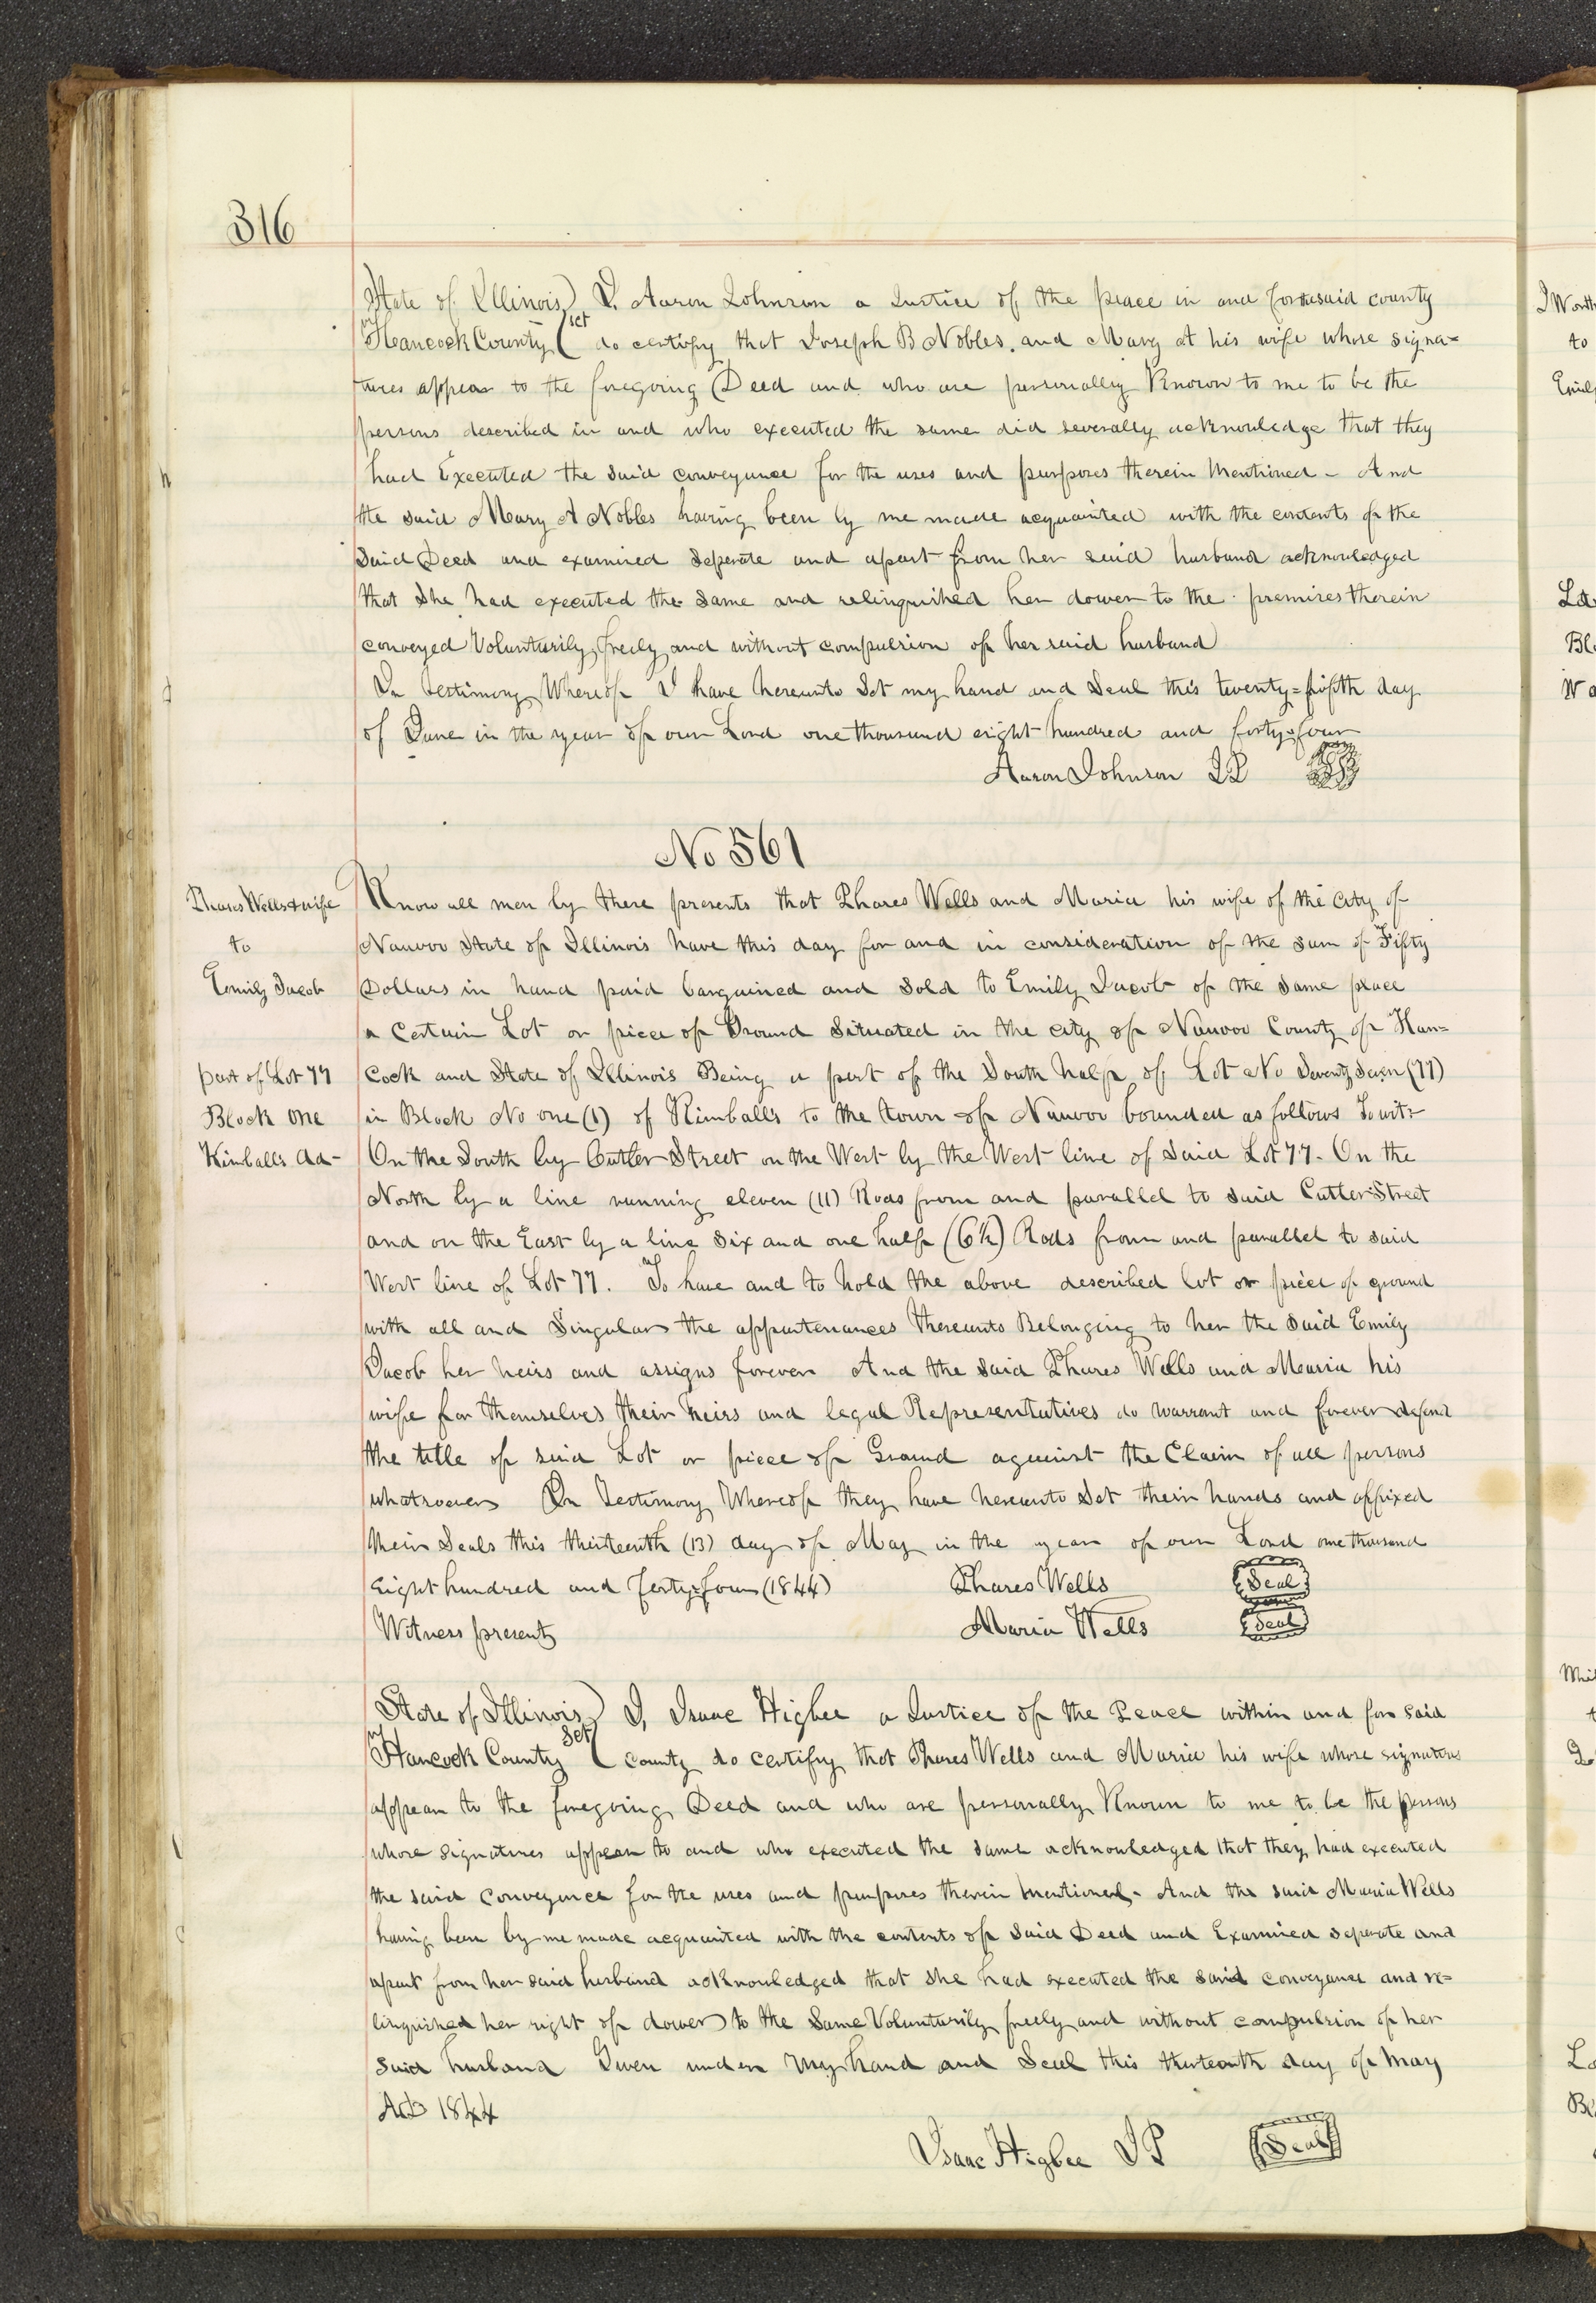 316
State of Illinois) I. Aaron Johnson a Justice of the peace in and for said county
Hancock County ( sct do certify that Joseph B Nobles. and Mary A his wife whose signa=
tures appear to the foregoing Deed and who are personally Known to me to be the
persons described in and who executed the same did severally acknowledge that they
had Executed the said conveyance for the uses and purposes therein Mentioned - And
the said Mary A Nobles having been by me made acquainted with the contents of the
Said Deed and examined Seperate and apart from her said husband acknowledged
that She had executed the Same and relinquished her dower to the premises therein
conveyed Voluntarily, freely and without compulsion of her said husband
In testimony Whereof I have hereunto Set my hand and Seal this twenty=fifth day
of June in the year of our Lord one thousand eight hundred and forty=four
Aaron Johnson JP
No 561
Phares Wells & wife
to
Emily Jacob
part of Lot 77
Block One
Kimballs Ad-
Know all men by these presents that Phares Wells and Maria his wife of the City of
Nauvoo State of Illinois have this day for and in consideration of the sum of Fifty
Dollars in hand paid bargained and Sold to Emily Jacob of the Same place
a Certain Lot or piece of Ground Situated in the city of Nauvoo County of Han=
Cock and State of Illinois Being a part of the South half of Lot No Seventy Seven (77)
in Block No one (1) of Kimballs to the town of Nauvoo bounded as follows To wit:
On the South by Cutler Street on the West by the West line of Said Lot 77. On the
North by a line running eleven (11) Rods from and parallel to Said Cutler Street
and on the East by a line Six and one half (6½) Rods from and parallel to said
West line of Lot 77. To have and to hold the above described lot or piece of ground
with all and Singular the appurtenances thereunto Belonging to her the Said Emily
Jacob her heirs and assigns forever And the Said Phares Wells and Maria his
wife for themselves their heirs and legal Representatives do warrant and forever defend
the title of said Lot or piece of Ground against the Claim of all persons
whatsoever In Testimony Whereof they have hereunto Set their hands and affixed
their Seals this thirteenth (13) day of May in the year of our Lord one thousand
Eight hundred and forty=four (1844) Phares Wells Seal
Witness present Maria Wells Seal
State of Illinois) I, Isaac Higbee a Justice of the Peace within and for said
Hancock County Sct ( County do certify that Phares Wells and Maria his wife whose signatures
appear to the foregoing Deed and who are personally Known to me to be the persons
whose signatures appear to and who executed the same acknowledged that they had executed
the said Conveyance for the uses and purposes therein mentioned. And the said Maria Wells
having been by me made acquainted with the contents of said Deed and Examined seperate and
apart from her said husband acknowledged that she had executed the said conveyance and re=
linquished her right of dower to the Same Voluntarily freely and without compulsion of her
said husband Given under my hand and Seal this thirteenth day of May
AD 1844
Isaac Higbee JP Seal